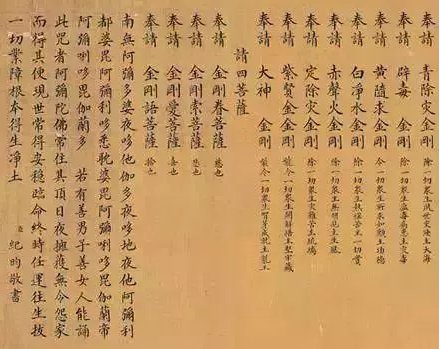 奉請 青除灾金剛 除一切衆生 主大海
奉請 辟毒金剛 除一切衆生瘟毒病患主灾毒
奉請 黃隨求金剛 令一切衆生所求如願主功德
奉請 白淨水金剛 除一切衆生熱惱苦主一切寶
奉請 赤聲火金剛 除一切衆生無明見主生風
奉請 定除灾金剛 除一切衆生灾難苦主琉璃
奉請 紫賢金金剛 令一切衆生開解悟主堅牢藏
奉請 大神金剛 令一切衆生智芽成就主龍王
請四菩薩
奉請 金剛眷菩薩 慈也
奉請 金剛索菩薩 悲也
奉請 金剛愛菩薩 喜也
奉請 金剛語菩薩 捨也
南無阿彌多婆夜哆他伽多夜哆地夜他阿彌利
都婆毘阿彌唎哆悉耽婆毘阿彌唎哆毘伽蘭帝
阿彌唎哆毘伽蘭多 若有善男子善女人能誦
此咒者阿彌陀佛常住其頂日夜擁護無令怨家
而得其便現世常得安穩臨命終時任運往生拔
一切業障根本得生淨土 臣 紀昀敬書